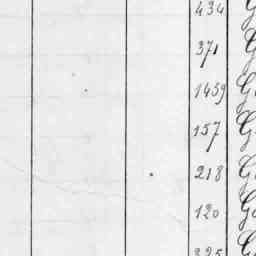 434
371
1459
157
218
120
325